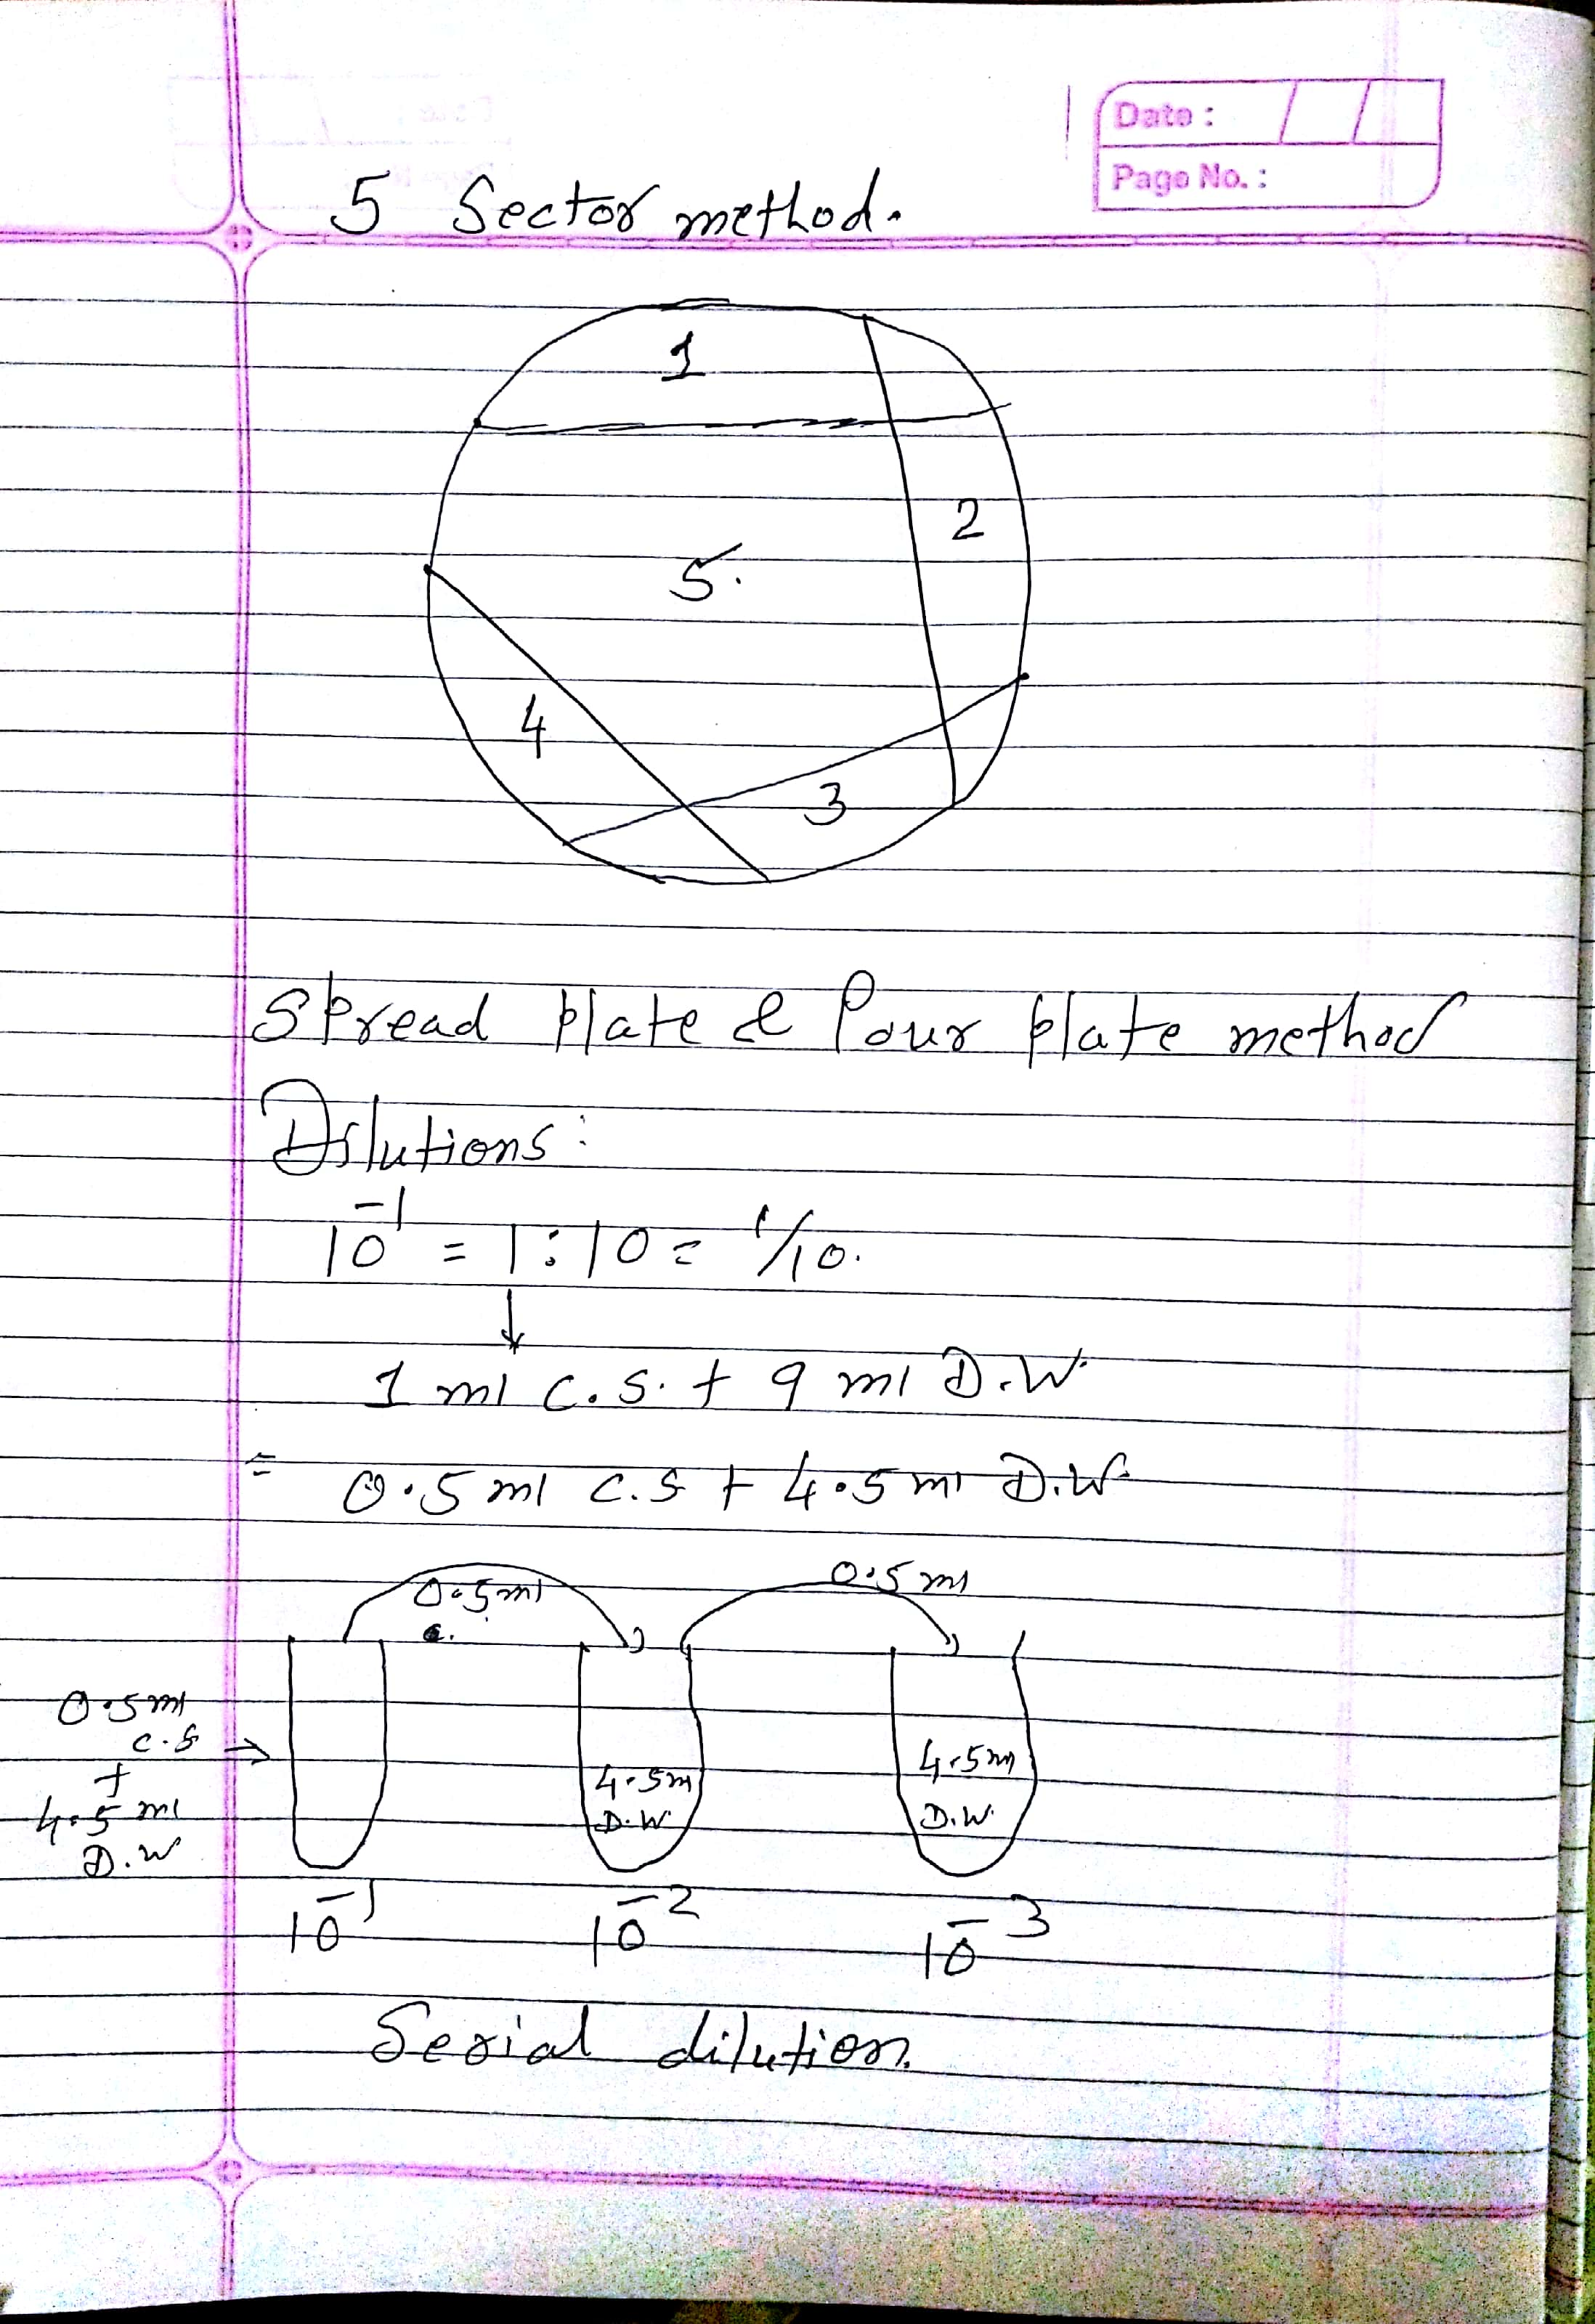 Date :
Page No. :
5 Sector method.
1
2
5.
4
3
Spread plate & Pour plate method
Dilutions :
10⁻¹ = 1 : 10 = 1/10.
↓
1 ml C.S. + 9 ml D.W.
= 0.5 ml C.S + 4.5 ml D.W.
0.5 ml
0.5 ml
0.5 ml
C.S →
+
4.5 ml
D.W
4.5 m
D.W.
4.5 m
D.W.
10⁻¹ 10⁻² 10⁻³
Serial dilution.